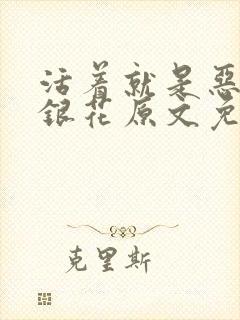 活着就是惡
銀花原文免
克里斯